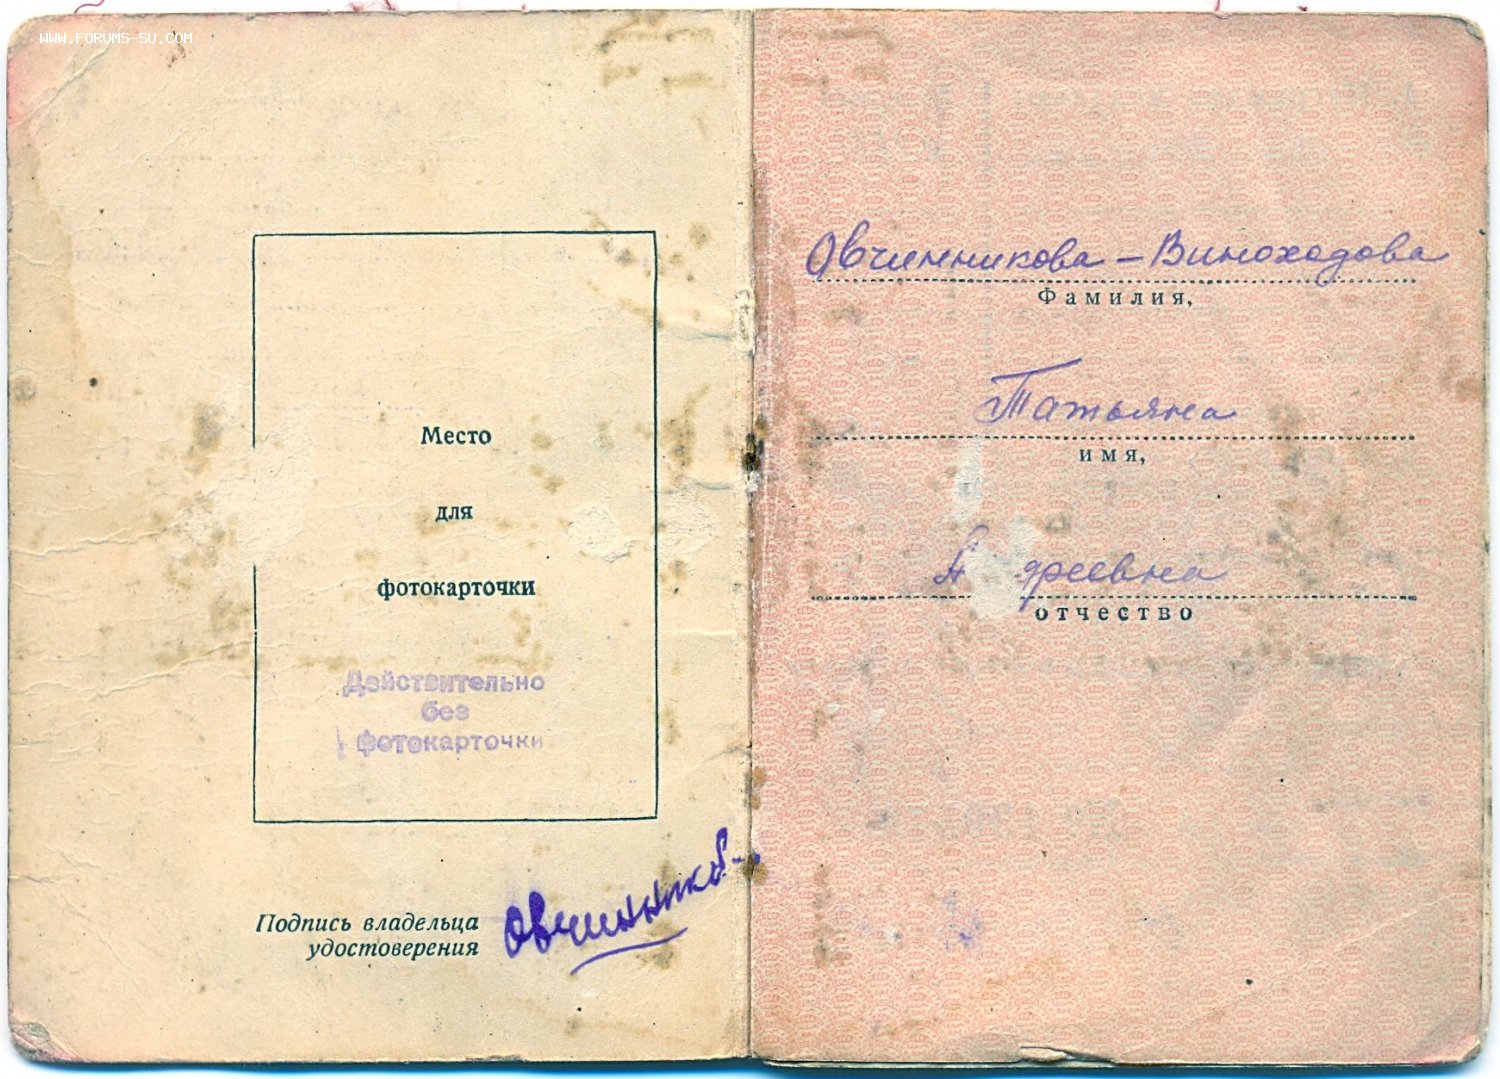 WWW.FORUMS-SU.COM
Место
для
фотокарточки
Действительно
без
фотокарточки
Подпись владельца
удостоверения
Овчинников
Овчинникова-Виноходова
Фамилия,
Татьяна
имя,
отчество